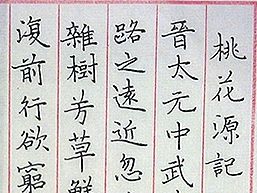 桃花源記
晉太元中武
路之遠近忽
雜樹芳草鮮
復前行欲窮